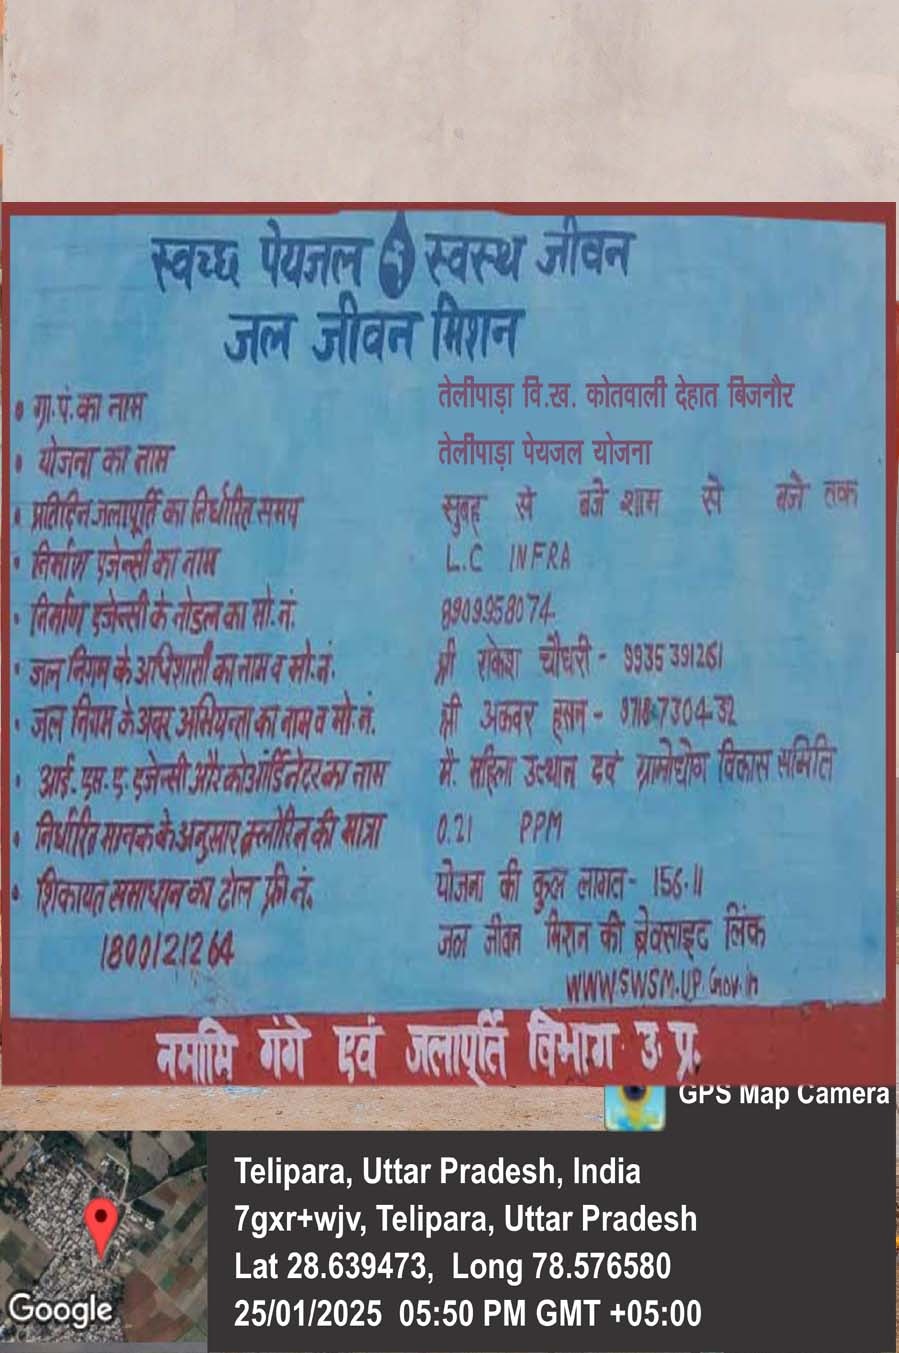 स्वच्छ पेयजल स्वस्थ जीवन
जल जीवन मिशन
• ग्रा.पं.का नाम तेलीपाड़ा वि.ख. कोतवाली देहात बिजनौर
• योजना का नाम तेलीपाड़ा पेयजल योजना
• प्रतिदिन जलापूर्ति का निर्धारित समय सुबह से बजे शाम से बजे तक
• निर्माण एजेन्सी का नाम L.C INFRA
• निर्माण एजेन्सी के नोडल का मो.नं. 8909958074
• जल निगम के अधिशासी का नाम व मो.नं. श्री राकेश चौधरी - 9935391261
• जल निगम के अवर अभियन्ता का नाम व मो.नं. श्री अकबर हसन -
• आई.एस.ए. एजेन्सी और कोऑर्डिनेटर का नाम मै. महिला उत्थान एवं ग्रामोद्योग विकास समिति
• निर्धारित मानक के अनुसार क्लोरिन की मात्रा 0.21 PPM
• शिकायत समाधान का टोल फ्री नं. योजना की कुल लागत - 156.11
1800121264 जल जीवन मिशन की बेवसाइट लिंक
WWW.SWSM.UP.Gov.in
नमामि गंगे एवं जलापूर्ति विभाग उ.प्र.
GPS Map Camera
Telipara, Uttar Pradesh, India
7gxr+wjv, Telipara, Uttar Pradesh
Lat 28.639473, Long 78.576580
25/01/2025 05:50 PM GMT +05:00
Google